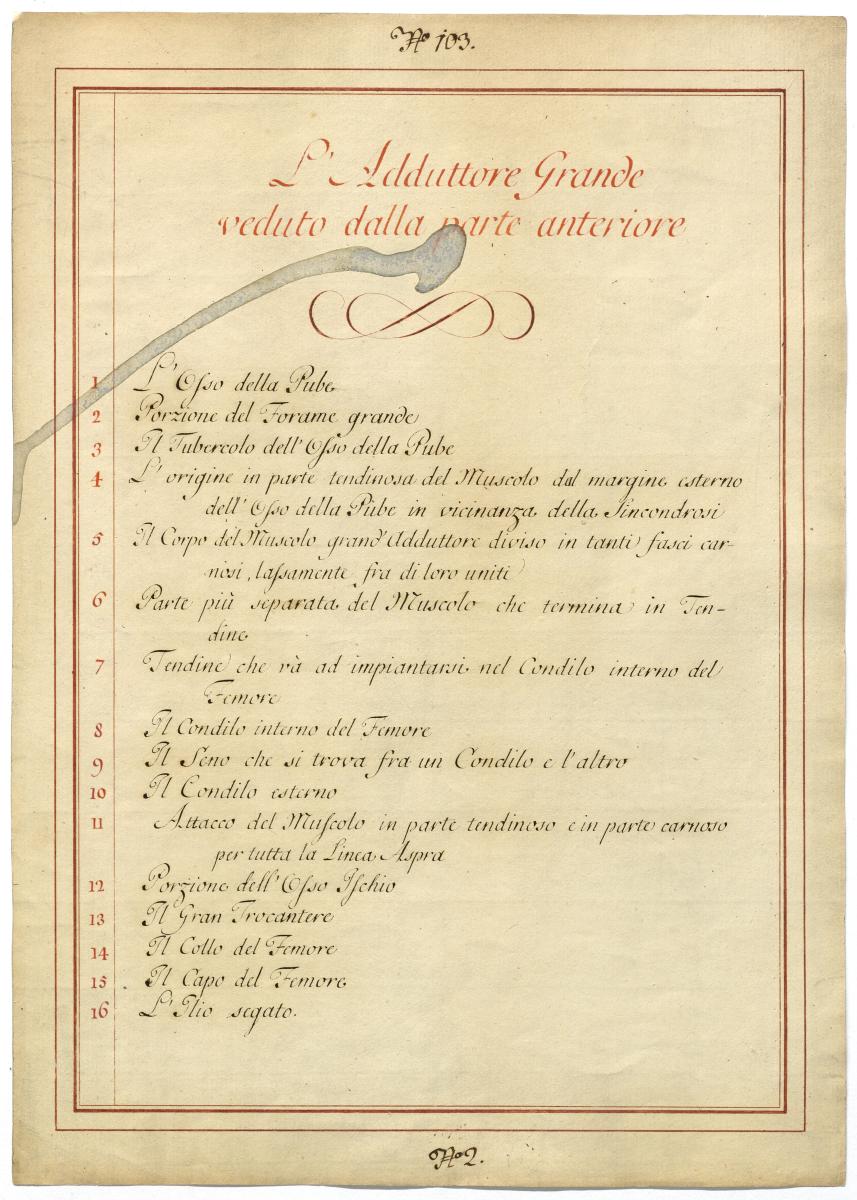 Nº 103.
L' Adduttore Grande
veduto dalla parte anteriore
1 L' Osso della Pube
2 Porzione del Forame grande
3 Il Tubercolo dell' Osso della Pube
4 L' origine in parte tendinosa del Muscolo dal margine esterno
dell' Osso della Pube in vicinanza della Sincondrosi
5 Il Corpo del Muscolo grand' Adduttore diviso in tanti fasci car-
nosi, lassamente fra di loro uniti
6 Parte più separata del Muscolo che termina in Ten-
dine
7 Tendine che và ad impiantarsi nel Condilo interno del
Femore
8 Il Condilo interno del Femore
9 Il Seno che si trova fra un Condilo e l'altro
10 Il Condilo esterno
11 Attacco del Muscolo in parte tendinoso e in parte carnoso
per tutta la Linea Aspra
12 Porzione dell' Osso Ischio
13 Il Gran Trocantere
14 Il Collo del Femore
15 Il Capo del Femore
16 L' Ilio segato.
Nº 2.